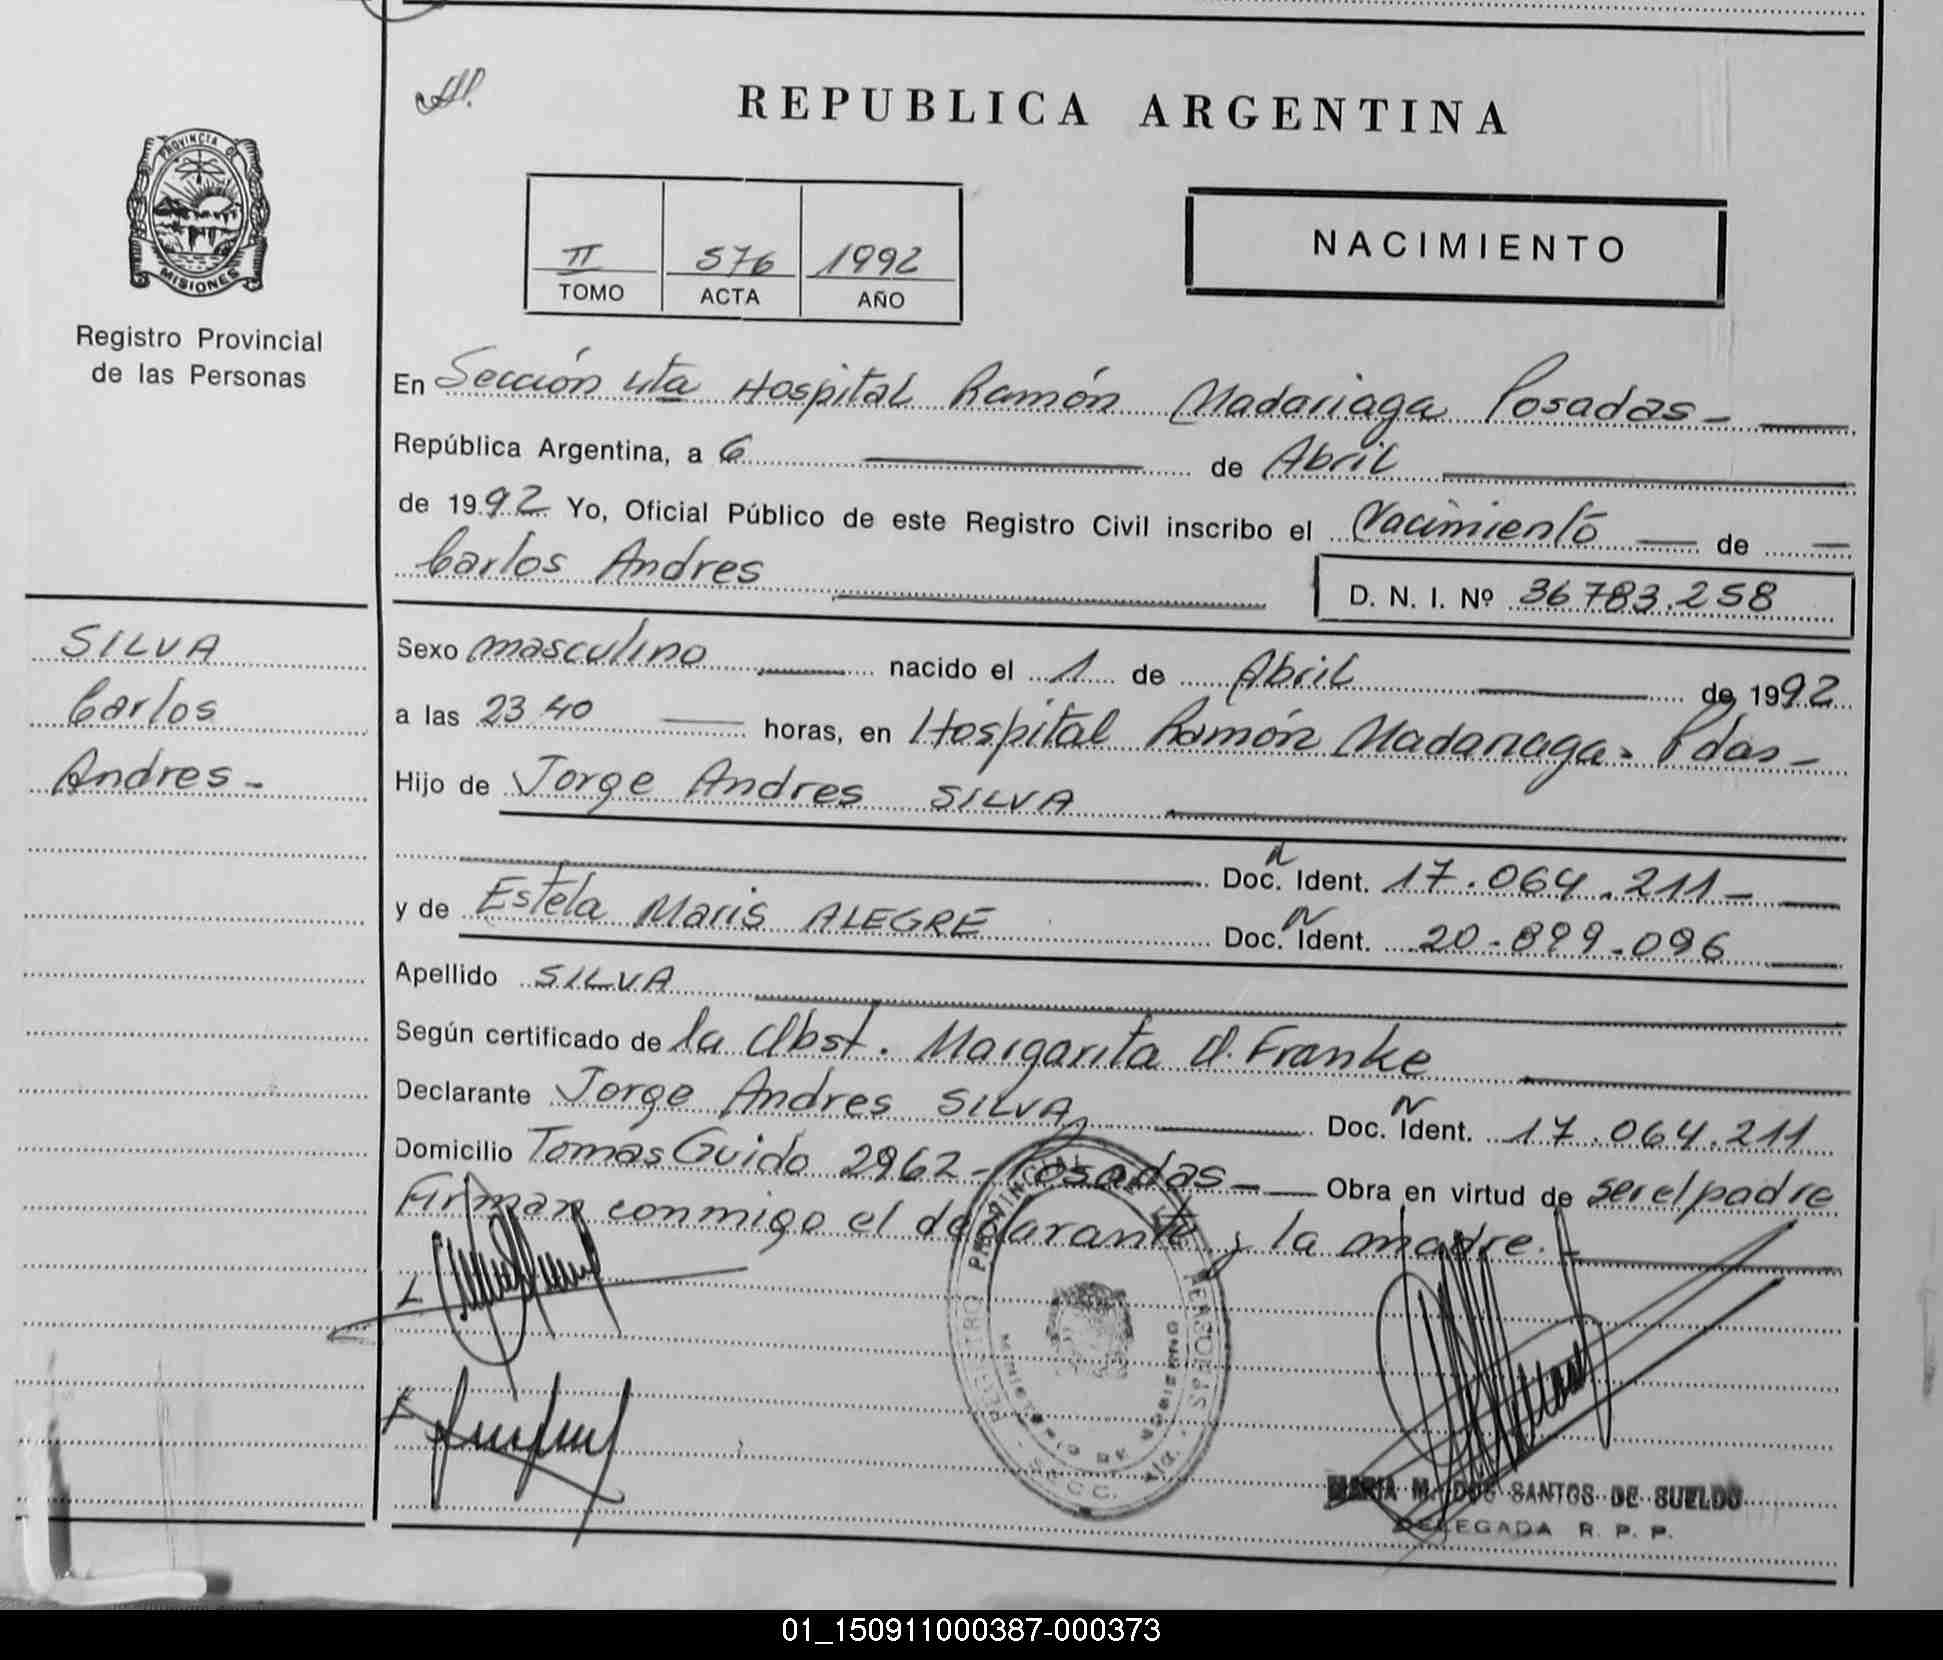 REPUBLICA ARGENTINA
PROVINCIA DE
MISIONES
Registro Provincial
de las Personas
II 576 1992
TOMO ACTA AÑO
NACIMIENTO
En Sección 4ta Hospital Ramón Madariaga Posadas -
República Argentina, a 6 de Abril
de 1992 Yo, Oficial Público de este Registro Civil inscribo el Nacimiento de
Carlos Andres
D. N. I. Nº 36783.258
SILVA
Carlos
Andres -
Sexo masculino nacido el 1 de Abril de 1992
a las 23 40 horas, en Hospital Ramón Madariaga - Pdas -
Hijo de Jorge Andres SILVA
Doc. N Ident. 17.064.211 -
y de Estela Maris ALEGRE Doc. N Ident. 20-899-096
Apellido SILVA
Según certificado de la Obst. Margarita D. Franke
Declarante Jorge Andres SILVA Doc. N Ident. 17.064.211
Domicilio Tomas Guido 2962 - Posadas - Obra en virtud de ser el padre
Firman conmigo el declarante y la madre. -
REGISTRO PROVINCIAL DE LAS PERSONAS
MINISTERIO DE GOBIERNO
MARIA M. DOS SANTOS DE SUELDO
DELEGADA R. P. P.
01_150911000387-000373